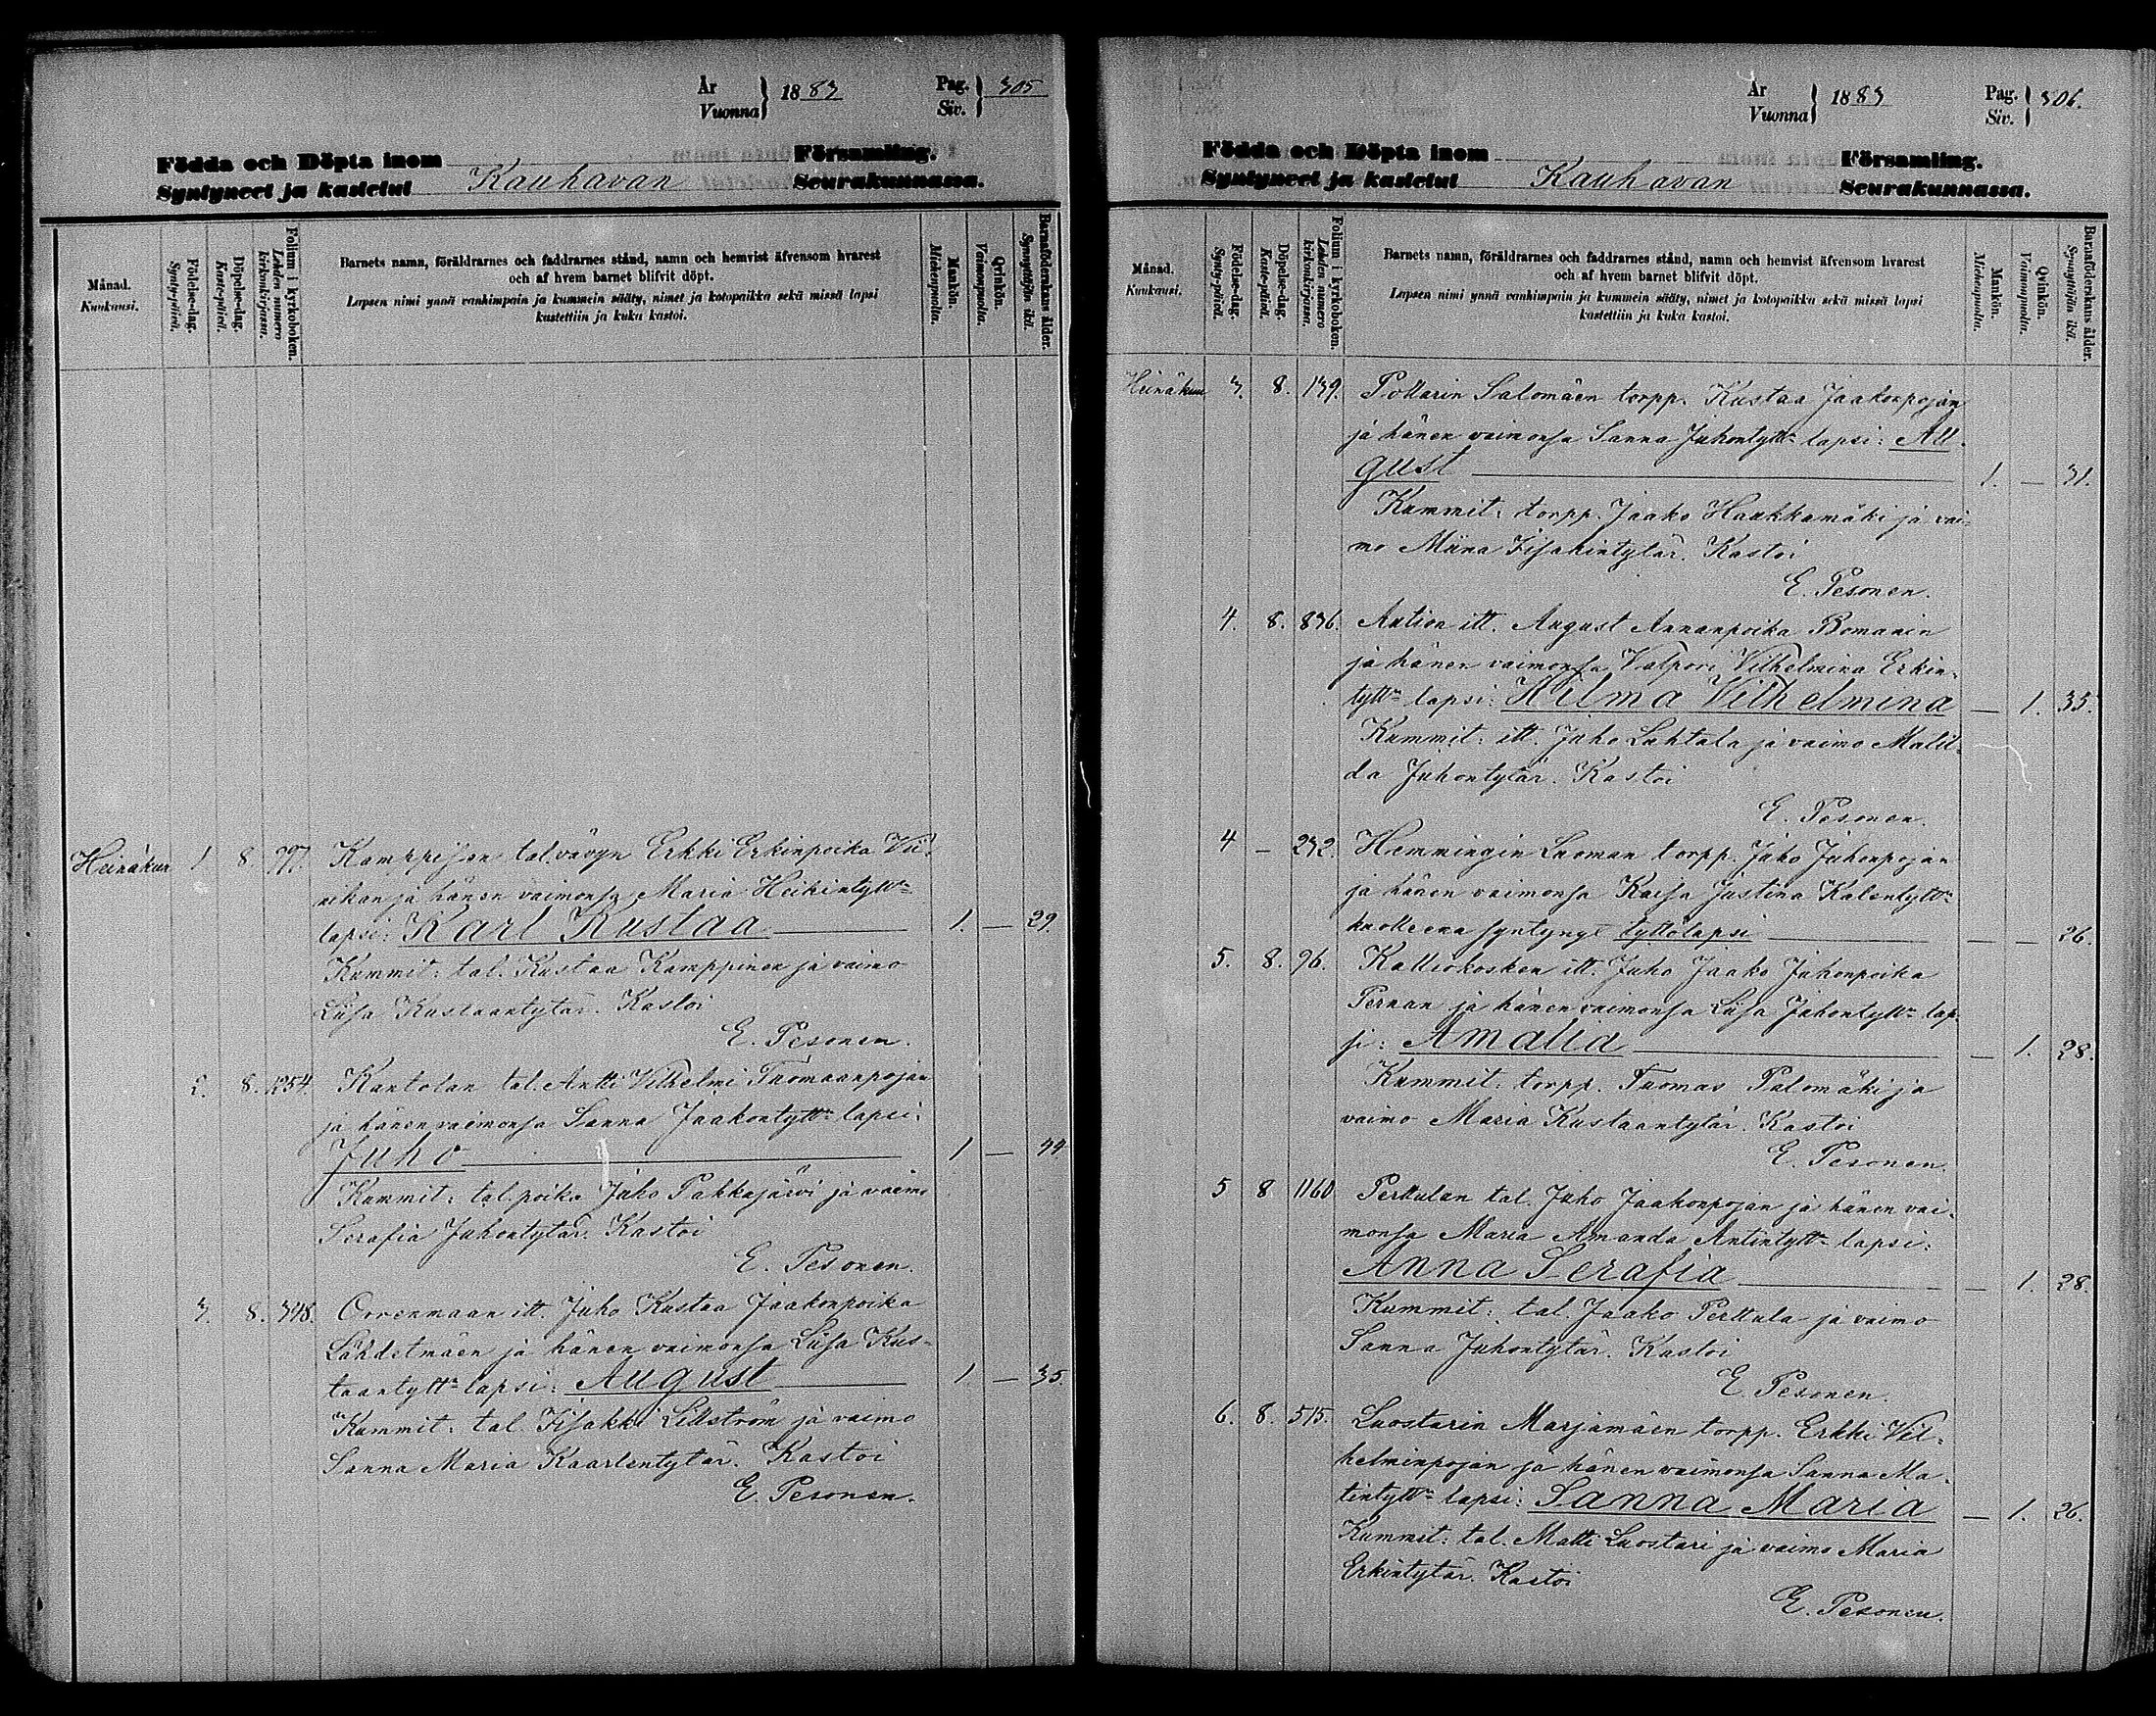 År
Vuonna } 1883
Pag.
Siv. } 305
Födda och Döpta inom Församling.
Syntyneet ja kastetut Kauhavan Seurakunnassa.
Månad.
Kuukausi.
Födelse-dag.
Synty-päivä.
Döpelse-dag.
Kaste-päivä.
Folium i kyrkoboken.
Lehden numero kirkonkirjassa.
Barnets namn, föräldrarnes och faddrarnes stånd, namn och hemvist äfvensom hvarest
och af hvem barnet blifvit döpt.
Lapsen nimi ynnä vanhimpain ja kummein sääty, nimet ja kotopaikka sekä missä lapsi
kastettiin ja kuka kastoi.
Mankön.
Miehenpuolia.
Qvinkön.
Vaimonpuolia.
Barnaföderskans ålder.
Synnyttäjän ikä.
Heinäkuu 1 8. Kamppisen tal. vävyn Erkki Erkinpoika Vii-
nikan ja hänen vaimonsa Maria Heikintytt:n
lapsi: Karl Kustaa 1. — 29.
Kummit: tal. Kustaa Kamppinen ja vaimo
Liisa Kustaantytär. Kastoi
E. Pesonen.
2. 8. 1254. Kantolan tal. Antti Vilhelmi Tuomaanpojan
ja hänen vaimonsa Sanna Jaakontytt:n lapsi:
Juho 1 — 44
Kummit: tal. poika Juho Pakkajärvi ja vaimo
Serafia Juhontytär. Kastoi
E. Pesonen.
3. 8. 348. Orrenmaan itt. Juho Kustaa Jaakonpoika
Lähdetmäen ja hänen vaimonsa Liisa Kus-
taantytt:n lapsi: August 1 — 35.
Kummit: tal. Iisakki Lillström ja vaimo
Sanna Maria Kaarlentytär. Kastoi
E. Pesonen.
År
Vuonna } 1883
Pag.
Siv. } 306.
Födda och Döpta inom Församling.
Syntyneet ja kastetut Kauhavan Seurakunnassa.
Månad.
Kuukausi.
Födelse-dag.
Synty-päivä.
Döpelse-dag.
Kaste-päivä.
Folium i kyrkoboken.
Lehden numero kirkonkirjassa.
Barnets namn, föräldrarnes och faddrarnes stånd, namn och hemvist äfvensom hvarest
och af hvem barnet blifvit döpt.
Lapsen nimi ynnä vanhimpain ja kummein sääty, nimet ja kotopaikka sekä missä lapsi
kastettiin ja kuka kastoi.
Mankön.
Miehenpuolia.
Qvinkön.
Vaimonpuolia.
Barnaföderskans ålder.
Synnyttäjän ikä.
Heinäkuu 3. 8. 139. Pollarin Salomäen torpp. Kustaa Jaakonpojan
ja hänen vaimonsa Sanna Juhontytt:n lapsi: Au-
gust 1. — 31.
Kummit: torpp. Jaako Haukkamäki ja vai-
mo Miina Iisakintytär. Kastoi
E. Pesonen.
4. 8. 836. Antion itt. August Annanpoika Bomanin
ja hänen vaimonsa Valpori Vilhelmina Erkin-
tytt:n lapsi: Hilma Vilhelmina — 1. 35.
Kummit: itt. Juho Lahtala ja vaimo Matil-
da Juhontytär. Kastoi
E. Pesonen.
4 — 232. Hemmingin Luoman torpp. Juho Juhonpojan
ja hänen vaimonsa Kaisa Justina Kalentytt:n
kuolleena syntynyt tyttölapsi — — 26.
5. 8. 96. Kalliokosken itt. Juho Jaako Juhonpoika
Pernan ja hänen vaimonsa Liisa Juhontytt:n lap-
si: Amalia — 1. 28.
Kummit: torpp. Tuomas Palomäki ja
vaimo Maria Kustaantytär. Kastoi
E. Pesonen.
5 8 1160 Perttulan tal. Juho Jaakonpojan ja hänen vai-
monsa Maria Amanda Antintytt:n lapsi:
Anna Serafia — 1. 28.
Kummit: tal. Jaako Perttula ja vaimo
Sanna Juhontytär. Kastoi
E. Pesonen.
6. 8. 515. Luostarin Marjamäen torpp. Erkki Vil-
helminpojan ja hänen vaimonsa Sanna Ma-
tintytt:n lapsi: Sanna Maria — 1. 26.
Kummit: tal. Matti Luostari ja vaimo Maria
Erkintytär. Kastoi
E. Pesonen.